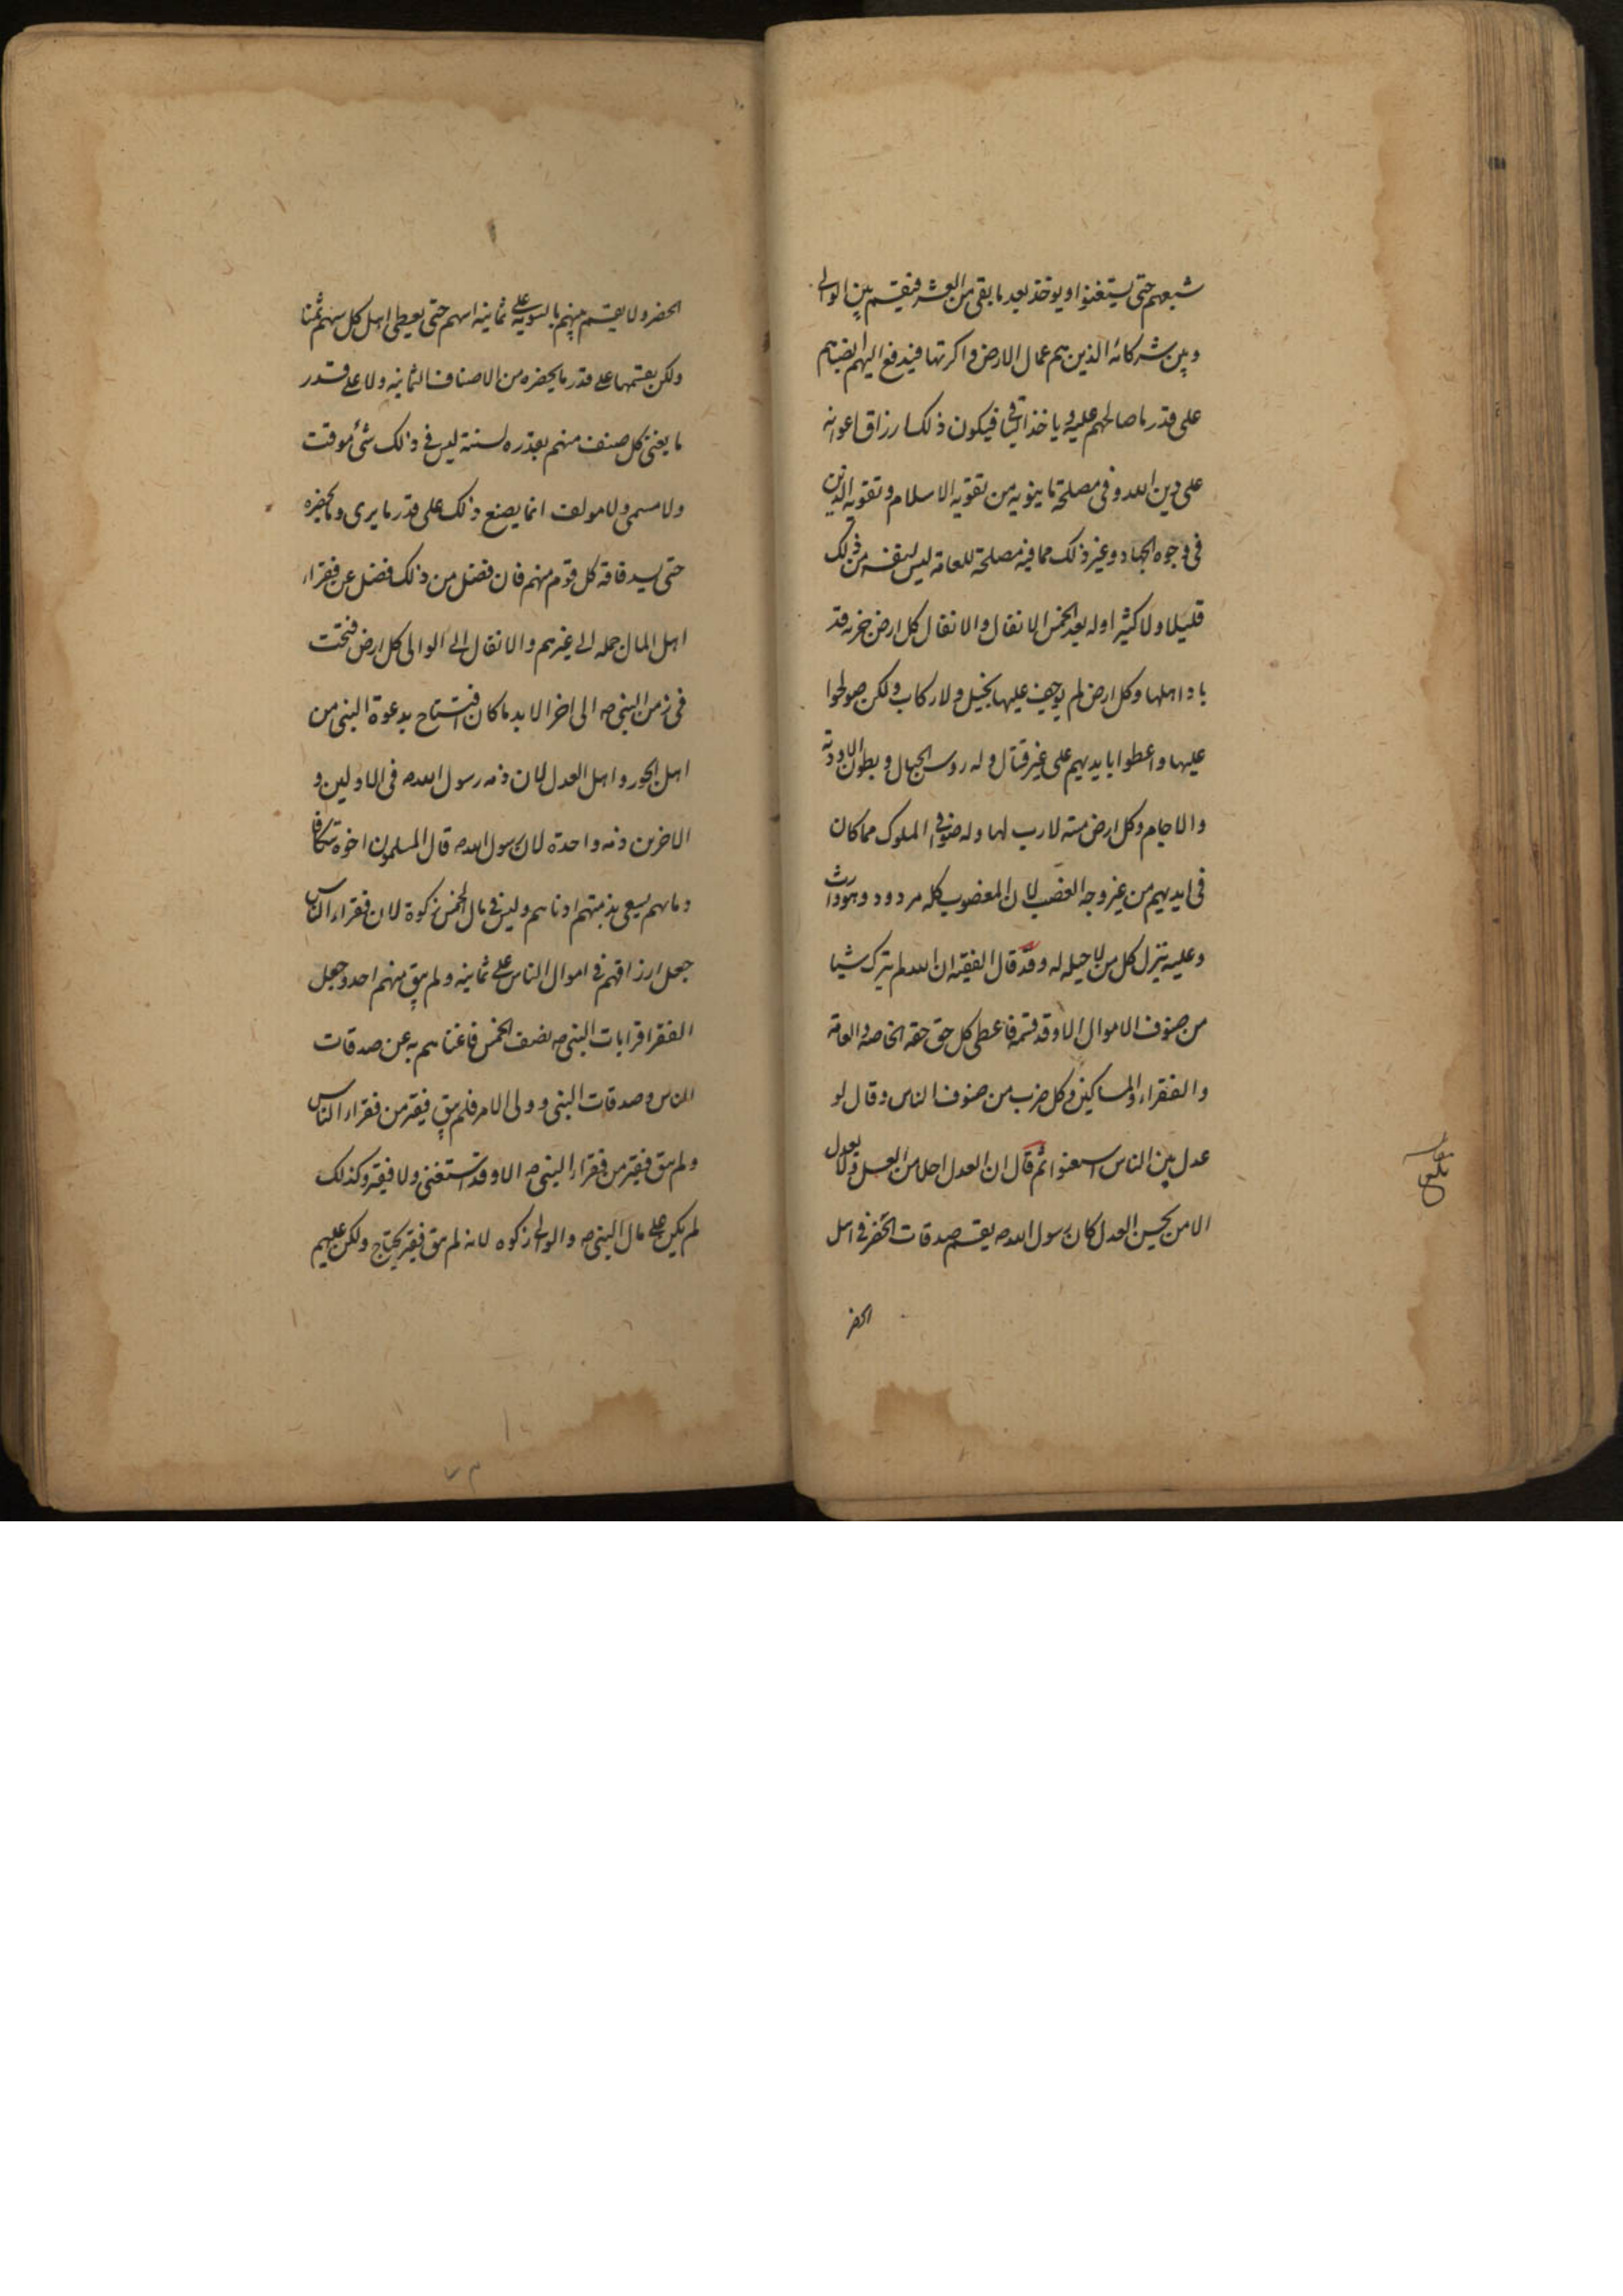 شبعهم حتى يستغنوا ويوخذ بعد ما بقى من العشر فيقسم بين الوالى
وبين شركائه الذين هم عمال الارض واكرتها فيدفع اليهم انصباهم
على قدر ما صالحهم عليه وياخذ الباقى فيكون ذلك ارزاق اعوانه
على دين الله وفى مصلحة ما ينوبه من تقوية الاسلام وتقوية الدين
فى وجوه الجهاد وغير ذلك مما فيه مصلحة للعامة ليس لنفسه من ذلك
قليلا ولا كثير وله بعد الخمس الانفال والانفال كل ارض خربة قد
باد اهلها وكل ارض لم يوجف عليها بخيل ولا ركاب ولكن صولحوا
عليها واعطوا بايديهم على غير قتال وله روس الجبال وبطون الاودية
والاجام وكل ارض ميته لا رب لها وله صوافى الملوك مما كان
فى ايديهم من غير وجه الغصب لان المغصوب كله مردود وهو وارث
وعليه ينزل كل من لا حيله له وقد قال الفقيه ان الله لم يترك شيا
من صنوف الاموال الا وقد قسمه فاعطى كل حق حقه الخاصة والعامة
والفقراء والمساكين وكل ضرب من صنوف الناس وقال لو
عدل بين الناس استغنوا ثم قال ان العدل احلا من العسل ولا يعدل
الا من يحسن العدل كان رسول الله ص يقسم صدقات الحضر فى اهل
الحضر
الحضر ولا يقسم بينهم بالسوية على ثمانية اسهم حتى يعطى اهل كل سهم ثمنا
ولكن يقسمها على قدر ما يحضره من الاصناف الثمانية ولا على قدر
ما يغنى كل صنف منهم بقدره لسنة ليس فى ذلك شئ موقت
ولا مسمى ولا مولف انما يصنع ذلك على قدر ما يرى وما يحضره
حتى يسد فاقة كل قوم منهم فان فضل من ذلك فضل عن فقراء
اهل المال حمله الى غيرهم والانفال الى الوالى كل ارض فتحت
فى زمن النبى ص الى اخر الابد ما كان افتتاح بدعوة النبى من
اهل الجور واهل العدل لان ذمة رسول الله ص فى الاولين و
الاخرين ذمه واحدة لان رسول الله ص قال المسلمون اخوة تتكافا
دماهم يسعى بذمتهم ادناهم وليس فى مال الخمس زكوة لان فقراء الناس
جعل ارزاقهم فى اموال الناس على ثمانيه ولم يبق منهم احد وجعل
الفقرا قرابات النبى ص نصف الخمس فاغناهم به عن صدقات
الناس وصدقات النبى وولى الامر فلم يبق فقير من فقراء الناس
ولم يبق فقير من فقراء النبى ص الا وقد استغنى ولا فقير وكذلك
لم يكن على مال النبى ص والوالى زكوه لانه لم يبق فقير يحتاج ولكن عليهم